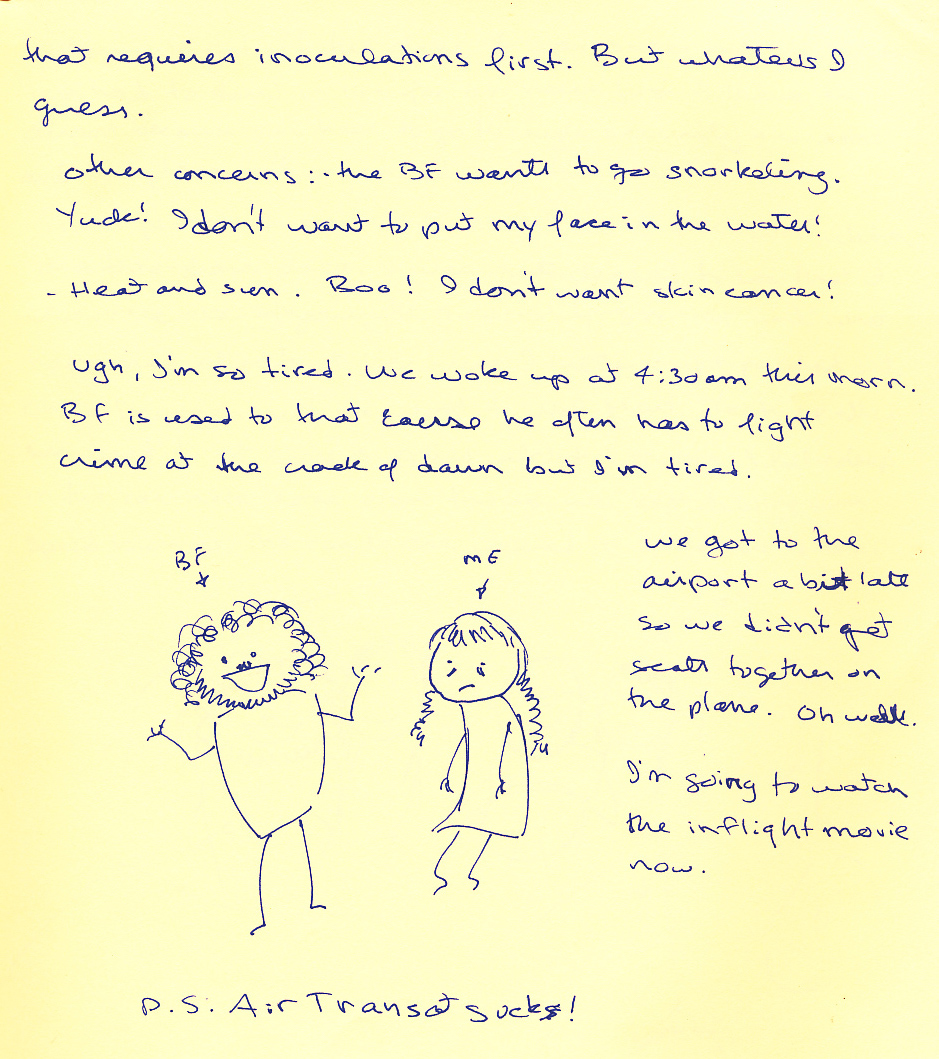 that requires inoculations first. But whatevs I
guess.
other concerns: - the BF wants to go snorkeling.
Yuck! I don't want to put my face in the water!
- Heat and sun. Boo! I don't want skin cancer!
Ugh, I'm so tired. We woke up at 4:30am this morn.
BF is used to that cause he often has to fight
crime at the crack of dawn but I'm tired.
BF
ME
we got to the
airport a bit late
so we didn't get
seats together on
the plane. Oh well.
I'm going to watch
the inflight movie
now.
P.S. Air Transat sucks!